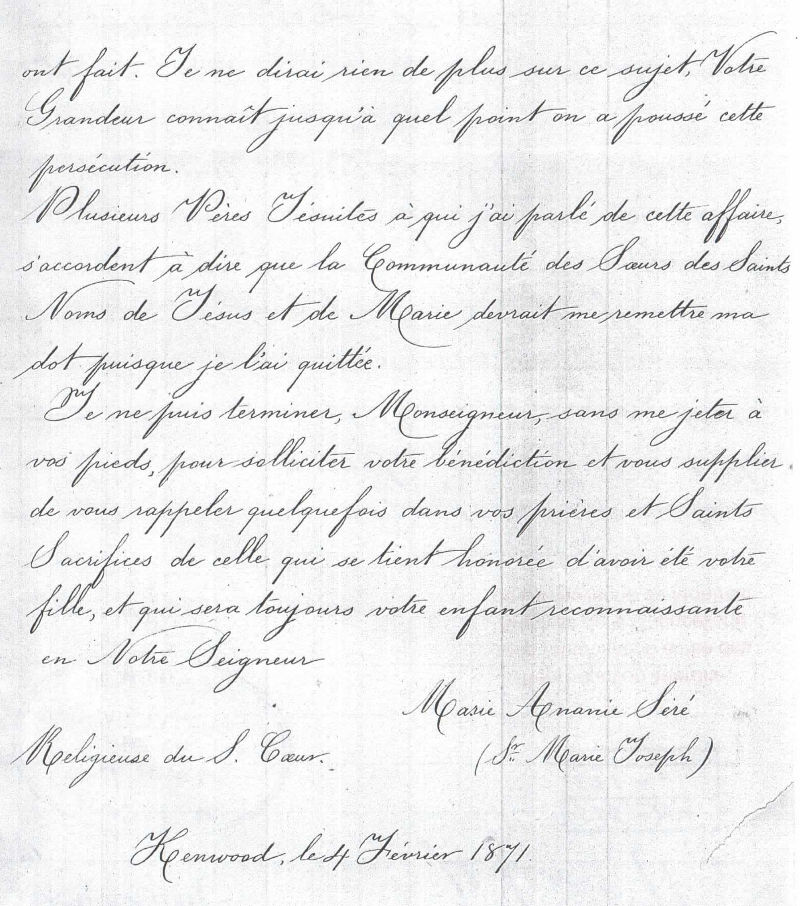 ont fait. Je ne dirai rien de plus sur ce sujet, Votre
Grandeur connaît jusqu'à quel point on a poussé cette
persécution.
Plusieurs Pères Jésuites à qui j'ai parlé de cette affaire,
s'accordent à dire que la Communauté des Sœurs des Saints
Noms de Jésus et de Marie devrait me remettre ma
dot puisque je l'ai quittée.
Je ne puis terminer, Monseigneur, sans me jeter à
vos pieds, pour solliciter votre bénédiction et vous supplier
de vous rappeler quelquefois dans vos prières et Saints
Sacrifices de celle qui se tient honorée d'avoir été votre
fille, et qui sera toujours votre enfant reconnaissante
en Notre Seigneur
Marie Ananie Séré
Religieuse du S. Cœur. (Sr. Marie Joseph)
Kenwood, le 4 Février 1871.